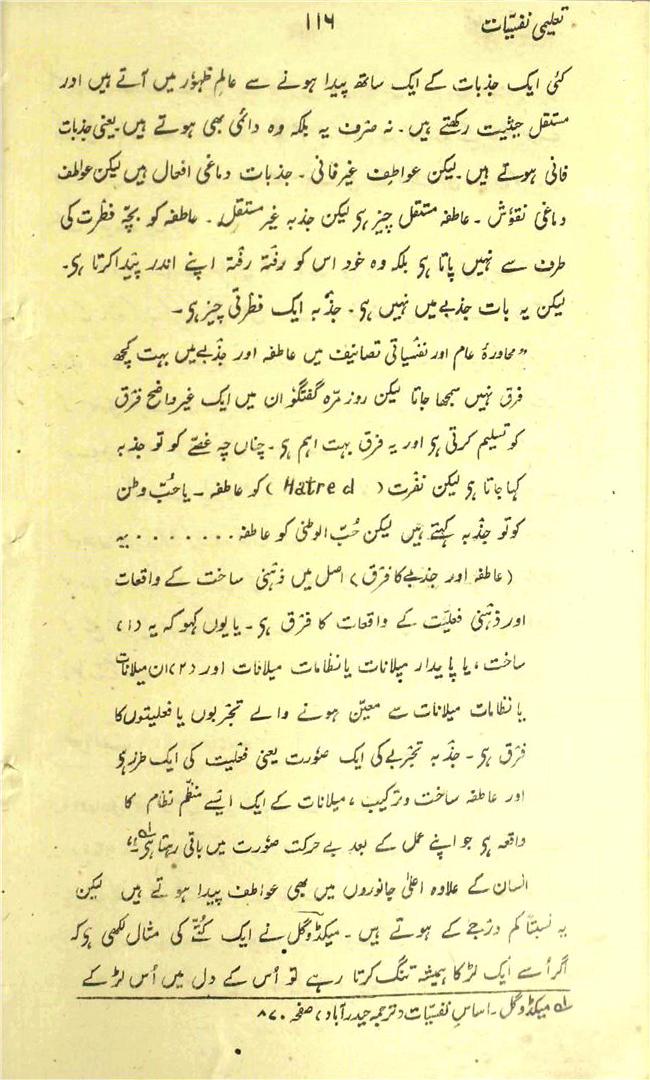 تعلیمی نفسیّات ۱۱۶
کئی ایک جذبات کے ایک ساتھ پیدا ہونے سے عالمِ ظہوٗر میں آتے ہیں اور
مستقل حیثیت رکھتے ہیں۔ نہ صرف یہ بلکہ وہ دائمی بھی ہوتے ہیں یعنی جذبات
فانی ہوتے ہیں۔ لیکن عواطِف غیر فانی۔ جذبات دماغی افعال ہیں لیکن عواطف
دماغی نقوٗش۔ عاطفہ مستقل چیز ہی لیکن جذبہ غیر مستقل۔ عاطفہ کو بچّہ فطرت کی
طرف سے نہیں پاتا ہی بلکہ وہ خود اس کو رفتہ رفتہ اپنے اندر پیدا کرتا ہی۔
لیکن یہ بات جذبے میں نہیں ہی۔ جذبہ ایک فطرتی چیز ہی۔
"محاورۂ عام اور نفسیاتی تصانیف میں عاطفہ اور جذبے میں بہت کچھ
فرق نہیں سمجھا جاتا لیکن روز مرّہ گفتگوٗ ان میں ایک غیر واضح فرق
کو تسلیم کرتی ہی اور یہ فرق بہت اہم ہی۔ چناں چہ غصّے کو تو جذبہ
کہا جاتا ہی لیکن نفرت (Hatred) کو عاطفہ۔ یا حُبِّ وطن
کو تو جذبہ کہتے ہیں لیکن حُبّ الوطنی کو عاطفہ . . . . . . . یہ
(عاطفہ اور جذبے کا فرق) اصل میں ذہنی ساخت کے واقعات
اور ذہنی فعلیّت کے واقعات کا فرق ہی۔ یا یوں کہو کہ یہ (۱)
ساخت، یا پایدار میلانات یا نظامات میلانات اور (۲) ان میلانات
یا نظامات میلانات سے معیّن ہونے والے تجربوں یا فعلیتوں کا
فرق ہی۔ جذبہ تجربے کی ایک صوٗرت یعنی فعلیت کی ایک طرز ہی
اور عاطفہ ساخت و ترکیب، میلانات کے ایک ایسے منظّم نظام کا
واقعہ ہی جو اپنے عمل کے بعد بے حرکت صوٗرت میں باقی رہتا ہی"۱؎
انسان کے علاوہ اعلیٰ جانوروں میں بھی عواطف پیدا ہوتے ہیں لیکن
یہ نسبتاً کم درجے کے ہوتے ہیں۔ میکڈوگل نے ایک کُتّے کی مثال لکھی ہی کہ
اگر اُسے ایک لڑکا ہمیشہ تنگ کرتا رہے تو اُس کے دل میں اُس لڑکے
۱؎ میکڈوگل۔ اساسِ نفسیّات (ترجمہ حیدرآباد) صفحہ ۸۷۰